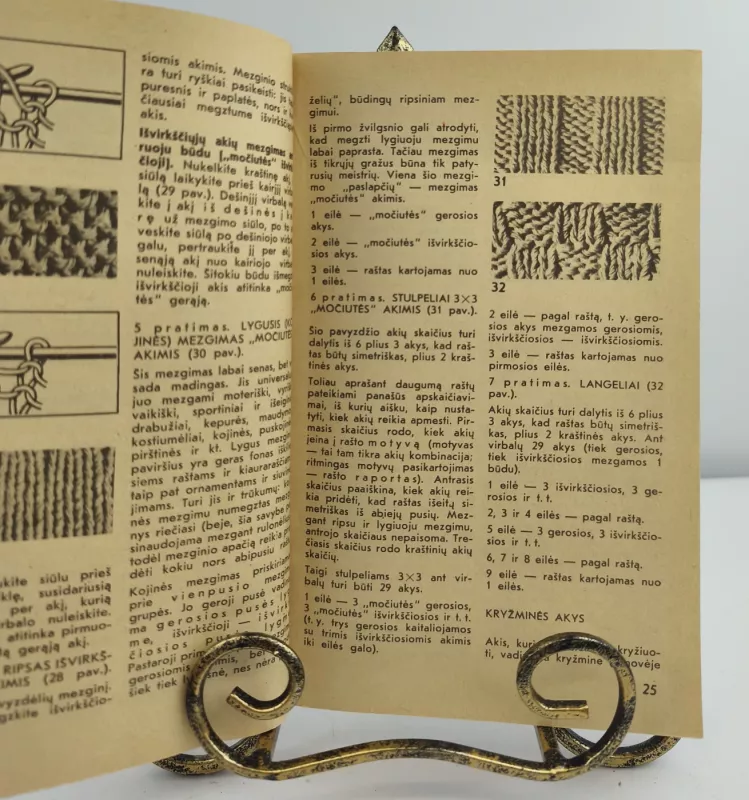 siomis akimis. Mezginio
ra turi ryškiai pasikeisti: jis
puresnis ir paplatės, nors ir
čiausiai megztume išvirkščiosiomis
akis.
Išvirkščiųjų akių mezgimas
ruoju būdu („močiutės"
čioji). Nukelkite kraštinę
siūlą laikykite prieš kairįjį
lą (29 pav.). Dešinįjį virbalą
kite į akį iš dešinės į
rę už mezgimo siūlo, po to
veskite siūlą po dešiniojo
galu, pertraukite jį per
senąją akį nuo kairiojo
nuleiskite. Šitokiu būdu
išvirkščioji akis atitinka
tės" gerąją.
5 pratimas. LYGUSIS
JINĖS) MEZGIMAS „MOČIUTĖS
AKIMIS (30 pav.).
Šis mezgimas labai senas, bet
sada madingas. Jis
juo mezgami moteriški,
vaikiški, sportiniai ir
drabužiai, kepurės,
kostiumėliai, kojinės,
pirštinės ir kt. Lygus
paviršius yra geras fonas
siems raštams ir
taip pat ornamentams ir
jimams. Turi jis ir trūkumų:
nės mezgimu numegztas
nys riečiasi (beje, šia savybe
sinaudojama mezgant
todėl mezginio apačią reikia
dėti kokiu nors abipusiu
Kojinės mezgimas
prie vienpusio
grupės. Jo geroji pusė
ma gerosios pusės
me, išvirkščioji —
čiosios pusės
Pastaroji
gerosiomis,
šiek tiek
siūlu prieš
susidariusią
per akį, kurią
nuleiskite.
atitinka
gerąją akį.
RIPSAS
(28 pav.).
mezginį.
želių", būdingų ripsiniam mez-
gimui.
Iš pirmo žvilgsnio gali atrodyti,
kad megzti lygiuoju mezgimu
labai paprasta. Tačiau mezgimas
iš tikrųjų gražus būna tik paty-
rusių meistrių. Viena šio mezgi-
mo „paslapčių" — mezgimas
„močiutės" akimis.
1 eilė — „močiutės" gerosios
akys.
2 eilė — „močiutės" išvirkščio-
sios akys.
3 eilė — raštas kartojamas nuo
1 eilės.
6 pratimas. STULPELIAI 3×3
„MOČIUTĖS" AKIMIS (31 pav.).
Šio pavyzdžio akių skaičius turi
dalytis iš 6 plius 3 akys, kad raš-
tas būtų simetriškas, plius 2 kraš-
tinės akys.
Toliau aprašant daugumą raštų
pateikiami panašūs apskaičiavi-
mai, iš kurių aišku, kaip nusta-
tyti, kiek akių reikia apmesti. Pir-
masis skaičius rodo, kiek akių
įeina į rašto motyvą (motyvas
— tai tam tikra akių kombinacija;
ritmingas motyvų pasikartojimas
— rašto raportas). Antrasis
skaičius paaiškina, kiek akių rei-
kia pridėti, kad raštas išeitų si-
metriškas iš abiejų pusių. Mez-
gant ripsu ir lygiuoju mezgimu,
antrojo skaičiaus nepaisoma. Tre-
čiasis skaičius rodo kraštinių akių
skaičių.
Taigi stulpeliams 3×3 ant vir-
balų turi būti 29 akys.
1 eilė — 3 „močiutės" gerosios,
3 „močiutės" išvirkščiosios ir t. t.
(t. y. trys gerosios kaitaliojamos
su trimis išvirkščiosiomis akimis
iki eilės galo).
31
32
2 eilė — pagal raštą, t. y. gero-
sios akys mezgamos gerosiomis,
išvirkščiosios — išvirkščiosiomis.
3 eilė — raštas kartojamas nuo
pirmosios eilės.
7 pratimas. LANGELIAI (32
pav.).
Akių skaičius turi dalytis iš 6 plius
3 akys, kad raštas būtų simetriš-
kas, plius 2 kraštinės akys. Ant
virbalų 29 akys (tiek gerosios,
tiek išvirkščiosios mezgamos 1
būdu).
1 eilė — 3 išvirkščiosios, 3 ge-
rosios ir t. t.
2, 3 ir 4 eilės — pagal raštą.
5 eilė — 3 gerosios, 3 išvirkščio-
sios ir t. t.
6, 7 ir 8 eilės — pagal raštą.
9 eilė — raštas kartojamas nuo
1 eilės.
KRYŽMINĖS AKYS
Akis, kryžiuo-
ti, kryžmine
25